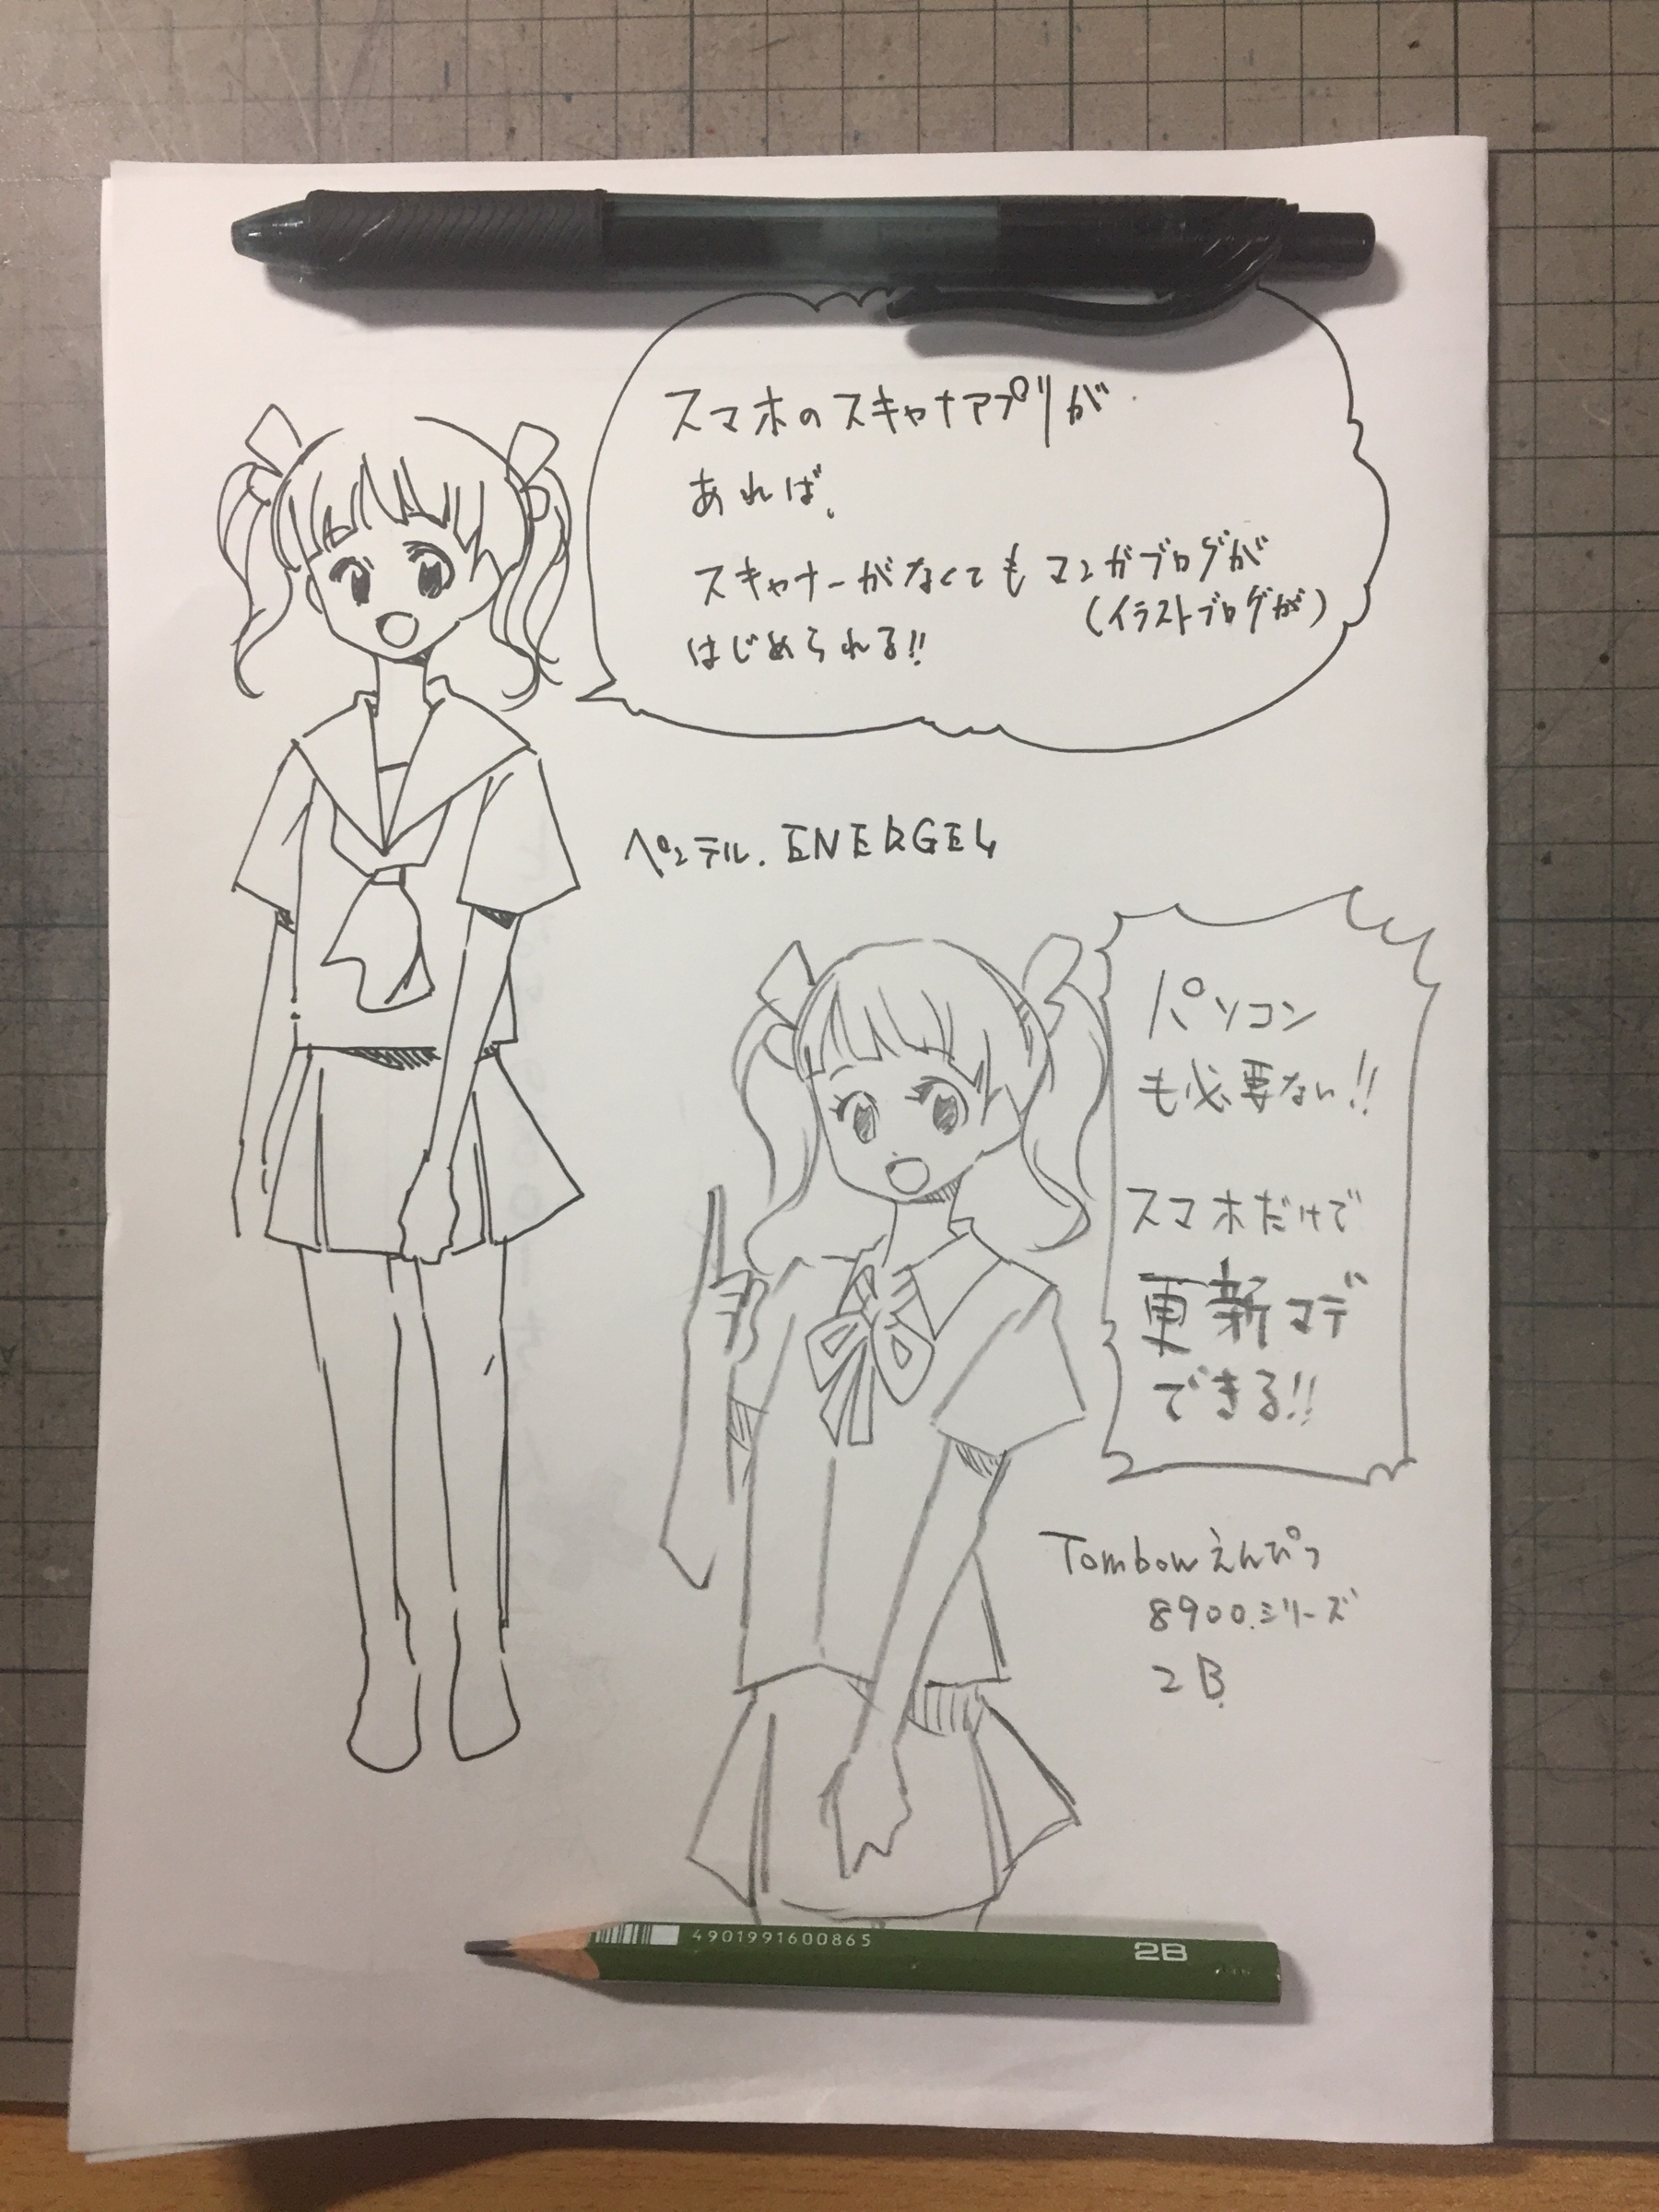 スマホのスキャナアプリが
あれば、
スキャナーがなくてもマンガブログが
(イラストブログが)
はじめられる!!
ペンテル. ENERGEL
パソコン
も必要ない!!
スマホだけで
更新マデ
できる!!
Tombowえんぴつ
8900.シリーズ
2B
4901991600865
2B